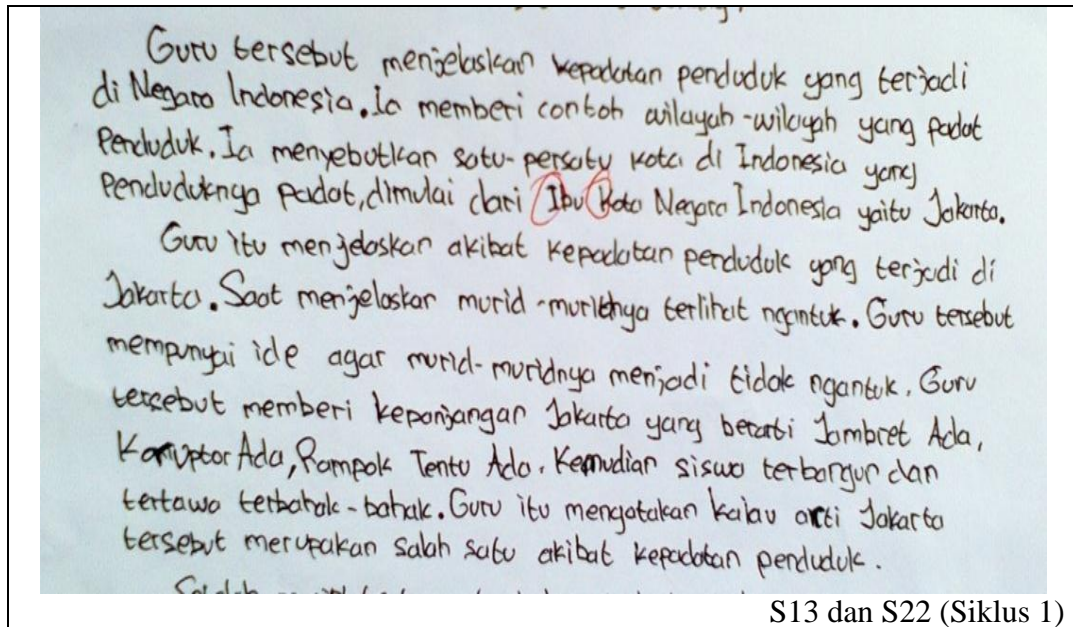 Guru tersebut menjelaskan kepadatan penduduk yang terjadi
di Negara Indonesia. Ia memberi contoh wilayah-wilayah yang padat
Penduduk. Ia menyebutkan satu-persatu kota di Indonesia yang
Penduduknya padat, dimulai dari Ibu Kota Negara Indonesia yaitu Jakarta.
Guru itu menjelaskan akibat kepadatan penduduk yang terjadi di
Jakarta. Saat menjelaskan murid-muridnya terlihat ngantuk. Guru tersebut
mempunyai ide agar murid-muridnya menjadi tidak ngantuk. Guru
tersebut memberi kepanjangan Jakarta yang berarti Jambret Ada,
Koruptor Ada, Rampok Tentu Ada. Kemudian siswa terbangun dan
tertawa terbahak-bahak. Guru itu mengatakan kalau arti Jakarta
tersebut merupakan salah satu akibat kepadatan penduduk.
S13 dan S22 (Siklus 1)